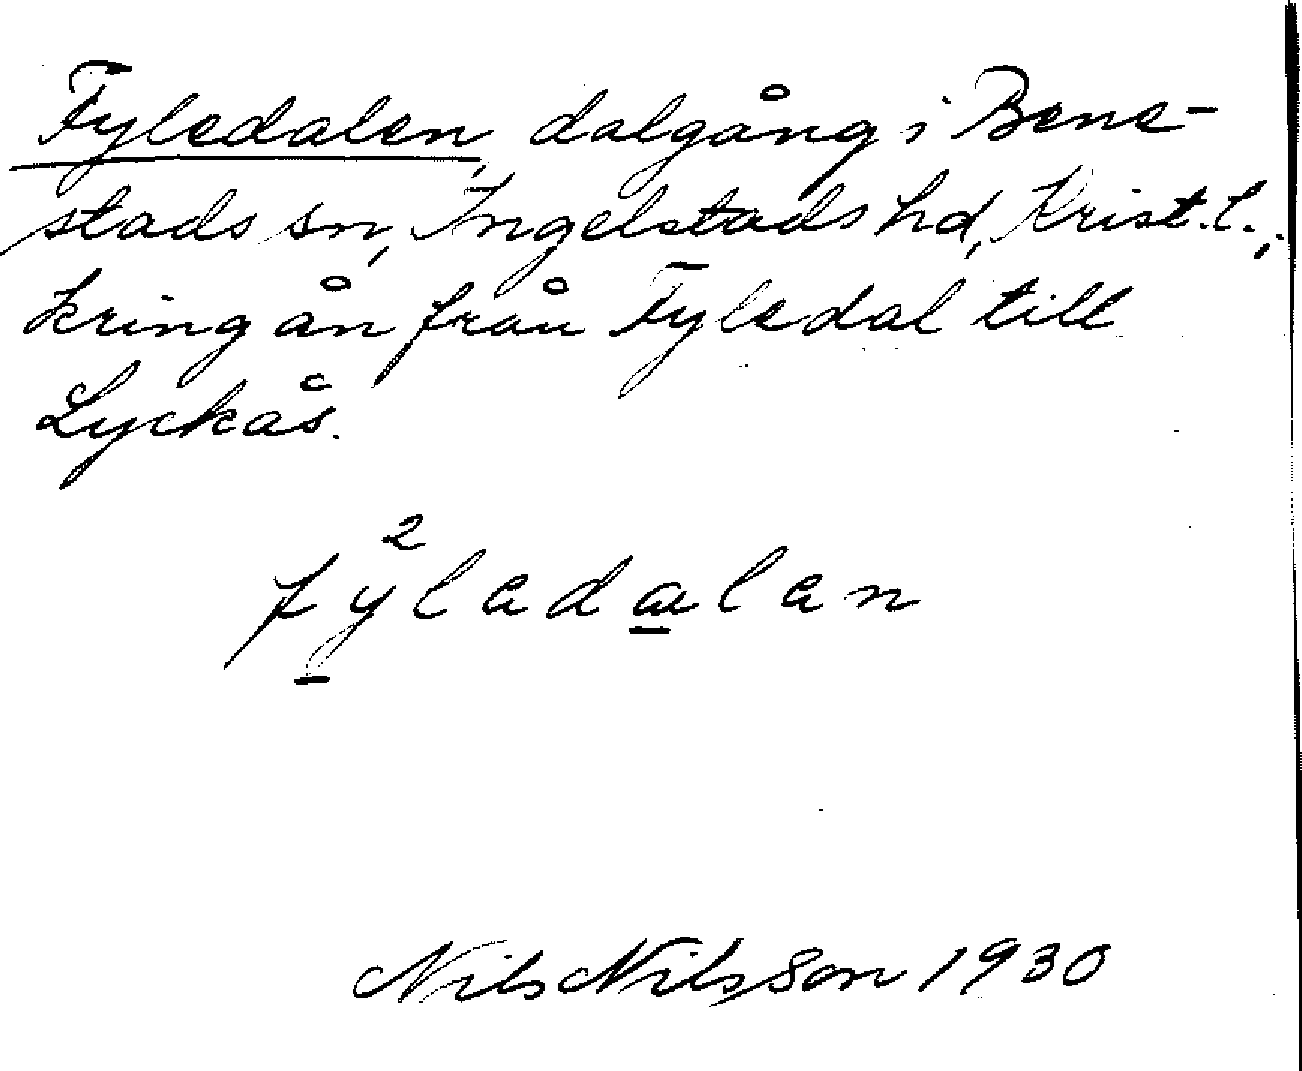 Fyledalen, dalgång i Bene-
stads sn, Ingelstads hd, Krist. l.,
kring ån från Fyledal till
Lyckås.
2
fyledalen
Nils Nilsson 1930